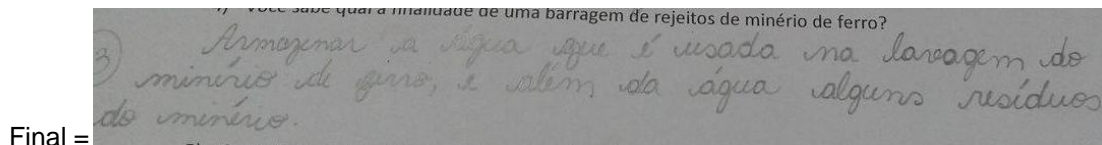 você sabe qual a finalidade de uma barragem de rejeitos de minério de ferro?
3) Armazenar a água que é usada na lavagem do
minério de ferro, e além da água alguns resíduos
do minério.
Final =